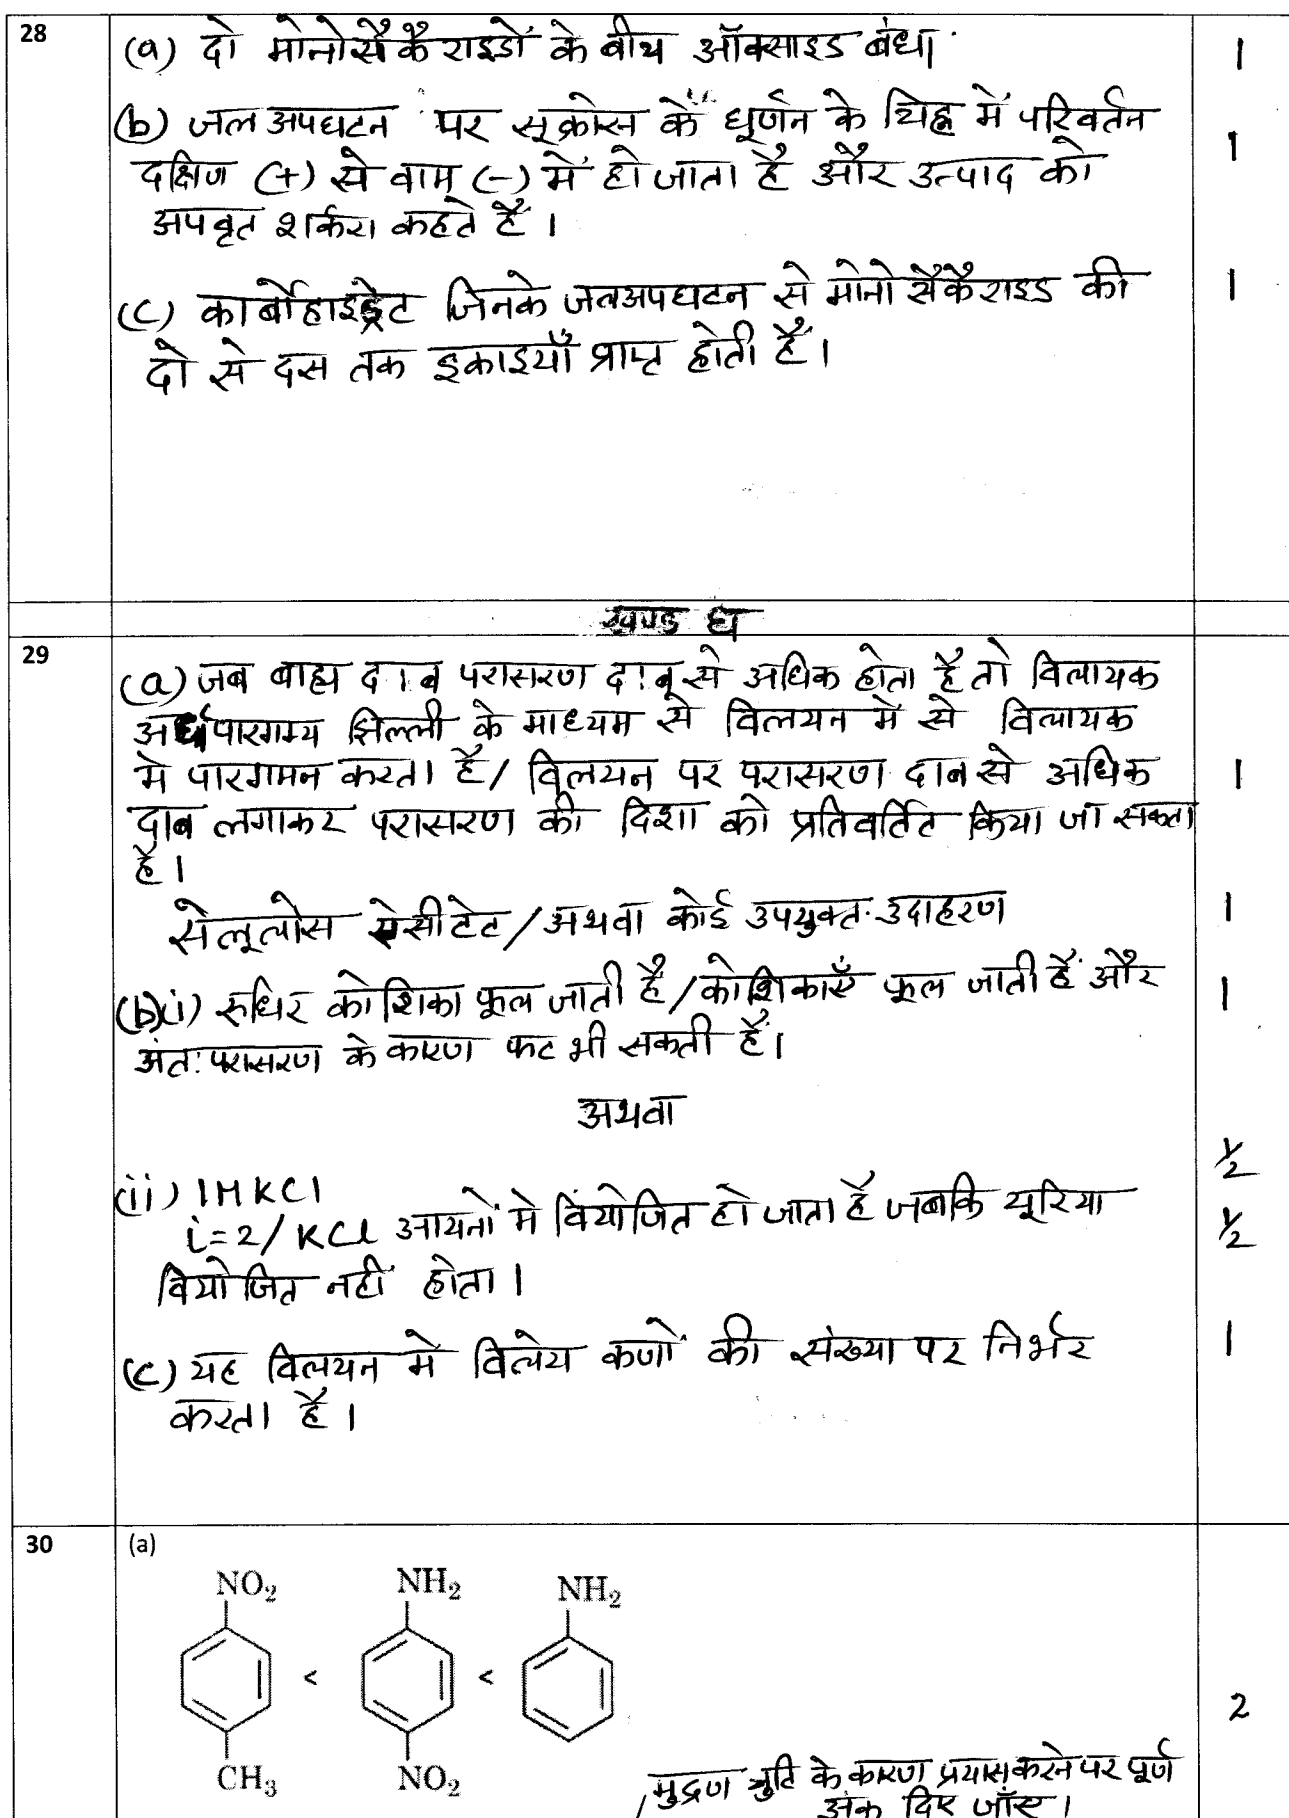 28
(a) दो मोनोसैकैराइडों के बीच ऑक्साइड बंध।
1
(b) जल अपघटन पर सूक्रोस के घूर्णन के चिह्न में परिवर्तन
दक्षिण (+) से वाम (-) में हो जाता है और उत्पाद को
अपवृत शर्करा कहते हैं।
1
(c) कार्बोहाइड्रेट जिनके जलअपघटन से मोनोसैकैराइड की
दो से दस तक इकाइयाँ प्राप्त होती हैं।
1
खण्ड घ
29
(a) जब बाह्य दाब परासरण दाब से अधिक होता है तो विलायक
अर्धपारगम्य झिल्ली के माध्यम से विलयन में से विलायक
मे पारगमन करता है/ विलयन पर परासरण दाब से अधिक
दाब लगाकर परासरण की दिशा को प्रतिवर्तित किया जा सकता
है।
1
सेलूलोस ऐसीटेट/अथवा कोई उपयुक्त उदाहरण
1
(b)(i) रुधिर कोशिका फूल जाती है/कोशिकाएँ फूल जाती हैं और
अंत: परासरण के कारण फट भी सकती हैं।
1
अथवा
(ii) 1M KCl
½
i=2/ KCl आयनों मे वियोजित हो जाता है जबकि यूरिया
वियोजित नहीं होता।
½
(c) यह विलयन में विलेय कणों की संख्या पर निर्भर
करता है।
1
30
(a)
NO₂ NH₂ NH₂
< <
CH₃ NO₂
2
/मुद्रण त्रुटि के कारण प्रयास करने पर पूर्ण
अंक दिए जाँए।